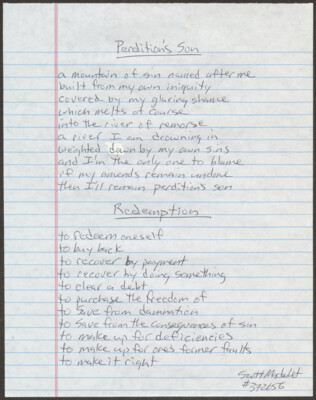 Perdition's Son
a mountain of sin named after me
built from my own iniquity
covered by my glaring shame
which melts of course
into the river of remorse
a river I am drowning in
weighted down by my own sins
and I'm the only one to blame
if my amends remain undone
then I'll remain perdition's son
Redemption
to redeem oneself
to buy back
to recover by payment
to recover by doing something
to clear a debt
to purchase the freedom of
to save from damnation
to save from the consequences of sin
to make up for deficiencies
to make up for ones former faults
to make it right
Scott